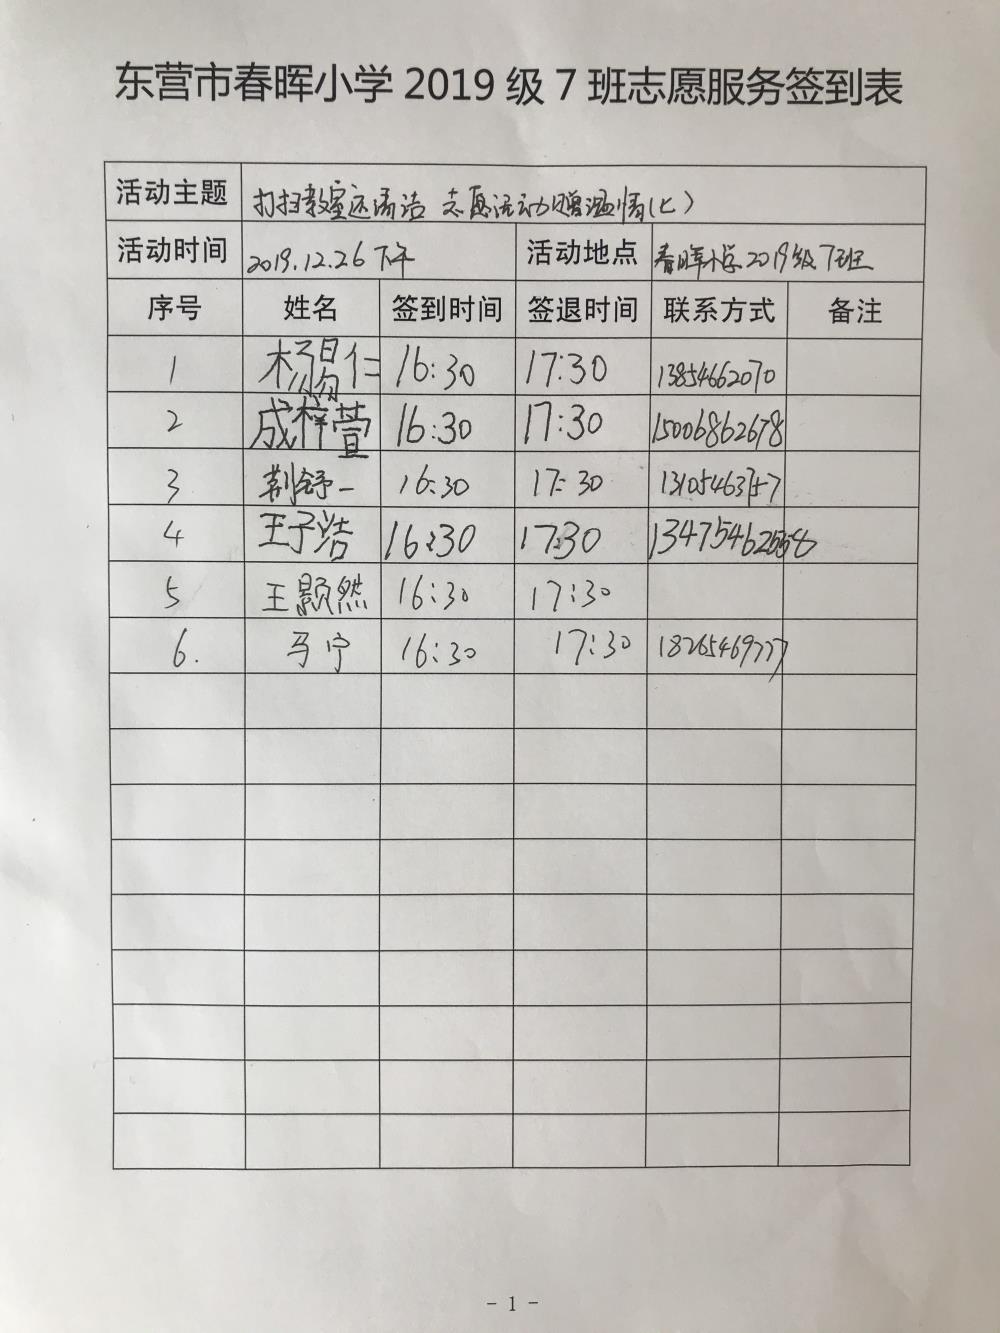 东营市春晖小学 2019 级 7 班志愿服务签到表
活动主题 打扫教室送清洁 志愿活动赠温情(七)
活动时间 2019.12.26 下午 活动地点 春晖小学2019级7班
序号 姓名 签到时间 签退时间 联系方式 备注
1 杨 仁 16:30 17:30 13854662070
2 成梓萱 16:30 17:30 15006862678
3 荆舒一 16:30 17:30
4 王子浩 16:30 17:30
5 王颢然 16:30 17:30
6. 马宁 16:30 17:30 18265469777
- 1 -